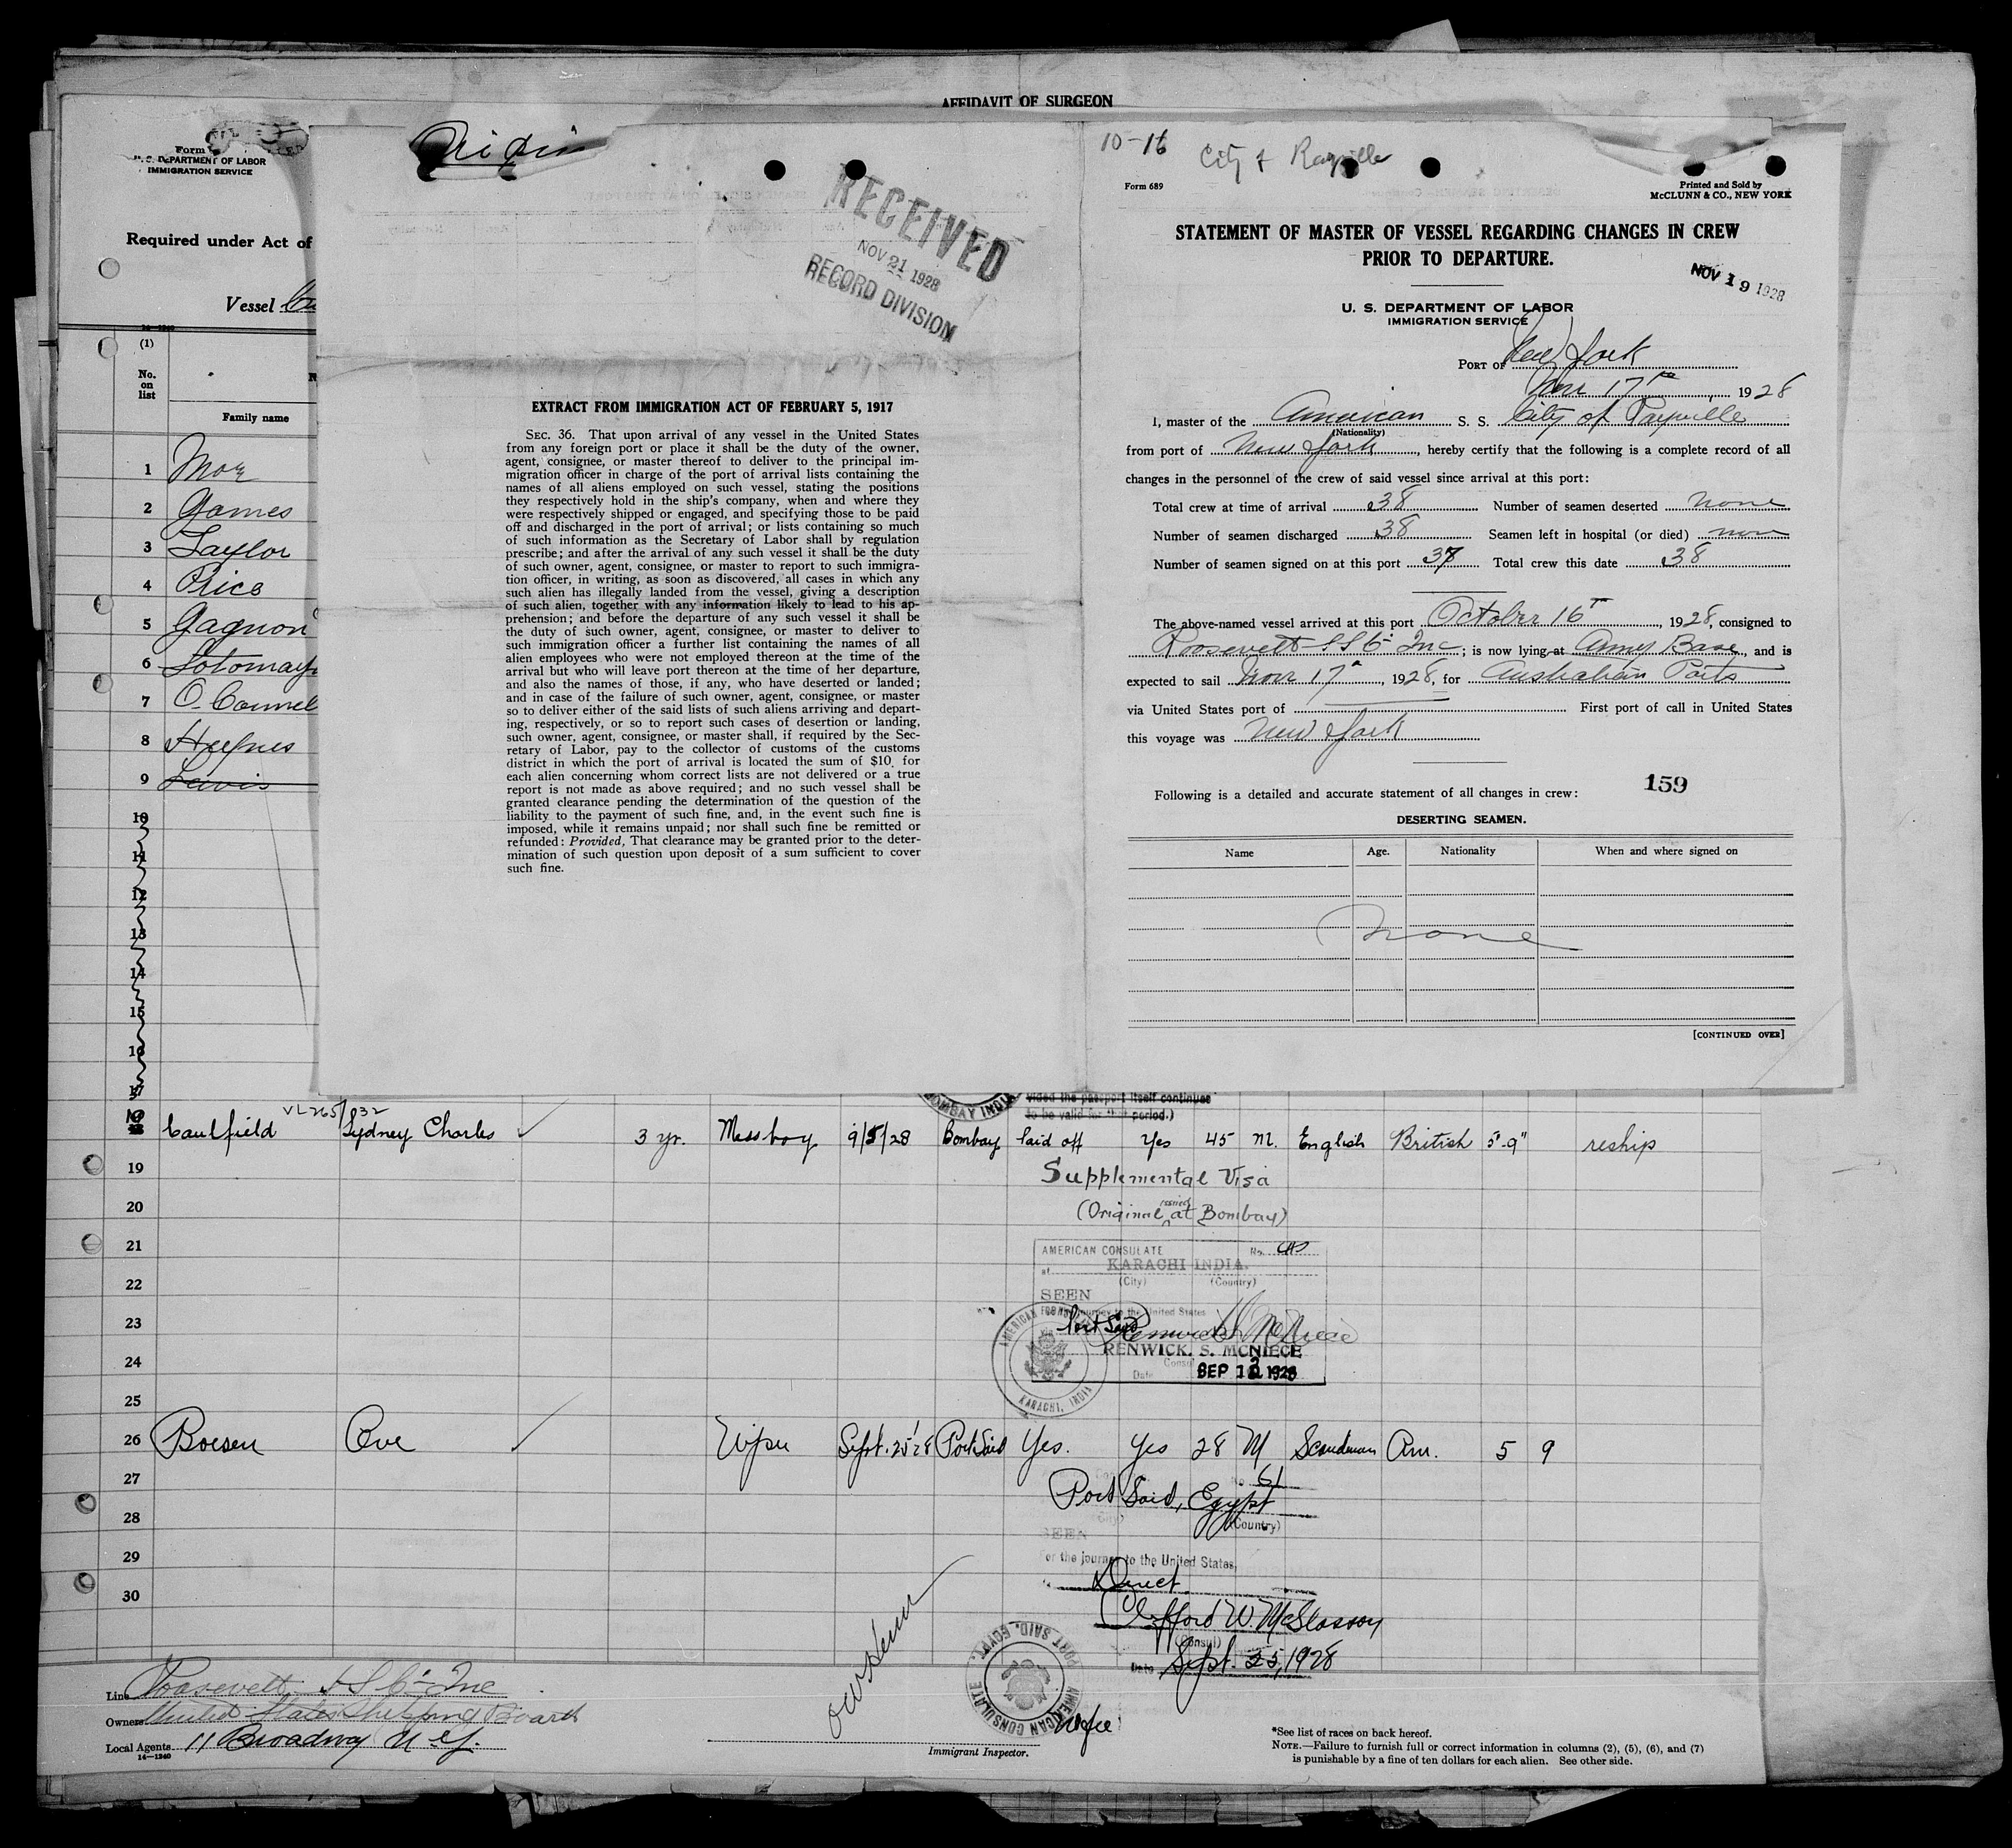 AFFIDAVIT OF SURGEON
Form
U. S. DEPARTMENT OF LABOR
IMMIGRATION SERVICE
Required under Act of
Vessel
(1)
No.
on
list
Family name
1
2 James
3 Taylor
4 Price
5 Gagnon
6 Sotomay
7 O. Connel
8 Hughes
9 Lewis
10
11
12
13
14
15
16
17
RECEIVED
NOV 21 1928
RECORD DIVISION
EXTRACT FROM IMMIGRATION ACT OF FEBRUARY 5, 1917
SEC. 36. That upon arrival of any vessel in the United States
from any foreign port or place it shall be the duty of the owner,
agent, consignee, or master thereof to deliver to the principal im-
migration officer in charge of the port of arrival lists containing the
names of all aliens employed on such vessel, stating the positions
they respectively hold in the ship's company, when and where they
were respectively shipped or engaged, and specifying those to be paid
off and discharged in the port of arrival; or lists containing so much
of such information as the Secretary of Labor shall by regulation
prescribe; and after the arrival of any such vessel it shall be the duty
of such owner, agent, consignee, or master to report to such immigra-
tion officer, in writing, as soon as discovered, all cases in which any
such alien has illegally landed from the vessel, giving a description
of such alien, together with any information likely to lead to his ap-
prehension; and before the departure of any such vessel it shall be
the duty of such owner, agent, consignee, or master to deliver to
such immigration officer a further list containing the names of all
alien employees who were not employed thereon at the time of the
arrival but who will leave port thereon at the time of her departure,
and also the names of those, if any, who have deserted or landed;
and in case of the failure of such owner, agent, consignee, or master
so to deliver either of the said lists of such aliens arriving and depart-
ing, respectively, or so to report such cases of desertion or landing,
such owner, agent, consignee, or master shall, if required by the Sec-
retary of Labor, pay to the collector of customs of the customs
district in which the port of arrival is located the sum of $10 for
each alien concerning whom correct lists are not delivered or a true
report is not made as above required; and no such vessel shall be
granted clearance pending the determination of the question of the
liability to the payment of such fine, and, in the event such fine is
imposed, while it remains unpaid; nor shall such fine be remitted or
refunded: Provided, That clearance may be granted prior to the deter-
mination of such question upon deposit of a sum sufficient to cover
such fine.
10-16 City of Rayville
Form 689
Printed and Sold by
McCLUNN & CO., NEW YORK
STATEMENT OF MASTER OF VESSEL REGARDING CHANGES IN CREW
PRIOR TO DEPARTURE.
NOV 19 1928
U. S. DEPARTMENT OF LABOR
IMMIGRATION SERVICE
PORT OF New York
Nov 17th, 1928
I, master of the American S. S. City of Rayville
(Nationality)
from port of New York, hereby certify that the following is a complete record of all
changes in the personnel of the crew of said vessel since arrival at this port:
Total crew at time of arrival 38 Number of seamen deserted none
Number of seamen discharged 38 Seamen left in hospital (or died) non
Number of seamen signed on at this port 37 Total crew this date 38
The above-named vessel arrived at this port October 16th, 1928, consigned to
Roosevelt S S Co Inc; is now lying at Army Base, and is
expected to sail Nov 17th, 1928, for Australian Ports
via United States port of First port of call in United States
this voyage was New York
159
Following is a detailed and accurate statement of all changes in crew:
DESERTING SEAMEN.
Name Age. Nationality When and where signed on
none
[CONTINUED OVER]
BOMBAY INDIA
vided the passport itself continues
to be valid for that period.)
VL265/832
Caulfield Sydney Charles 3 yr. Messboy 9/5/28 Bombay Paid off Yes 45 M. English British 5'-9" reship
19 Supplemental Visa
20 (Original issued at Bombay)
21
AMERICAN CONSULATE No.
at KARACHI INDIA.
(City) (Country)
22
SEEN
For the journey to the United States
23 Port Said Renwick S. McNiece
RENWICK. S. MCNIECE
24 Consul
Date SEP 12 1928
AMERICAN KARACHI, INDIA
25
26 Boesen Ove Wiper Sept. 25'28 Port Said Yes. Yes 28 M Am. 5 9
27 No. 61
Port Said, Egypt
28 (City) (Country)
SEEN
29 For the journey to the United States,
Direct
30
Clifford W. McGlasson
(Consul)
Date Sept. 25, 1928
AMERICAN CONSULATE PORT SAID, EGYPT.
Line Roosevelt S S Co Inc
Owners United States Shipping Board
Local Agents 11 Broadway N.Y.
14—1240
Immigrant Inspector.
*See list of races on back hereof.
NOTE.—Failure to furnish full or correct information in columns (2), (5), (6), and (7)
is punishable by a fine of ten dollars for each alien. See other side.